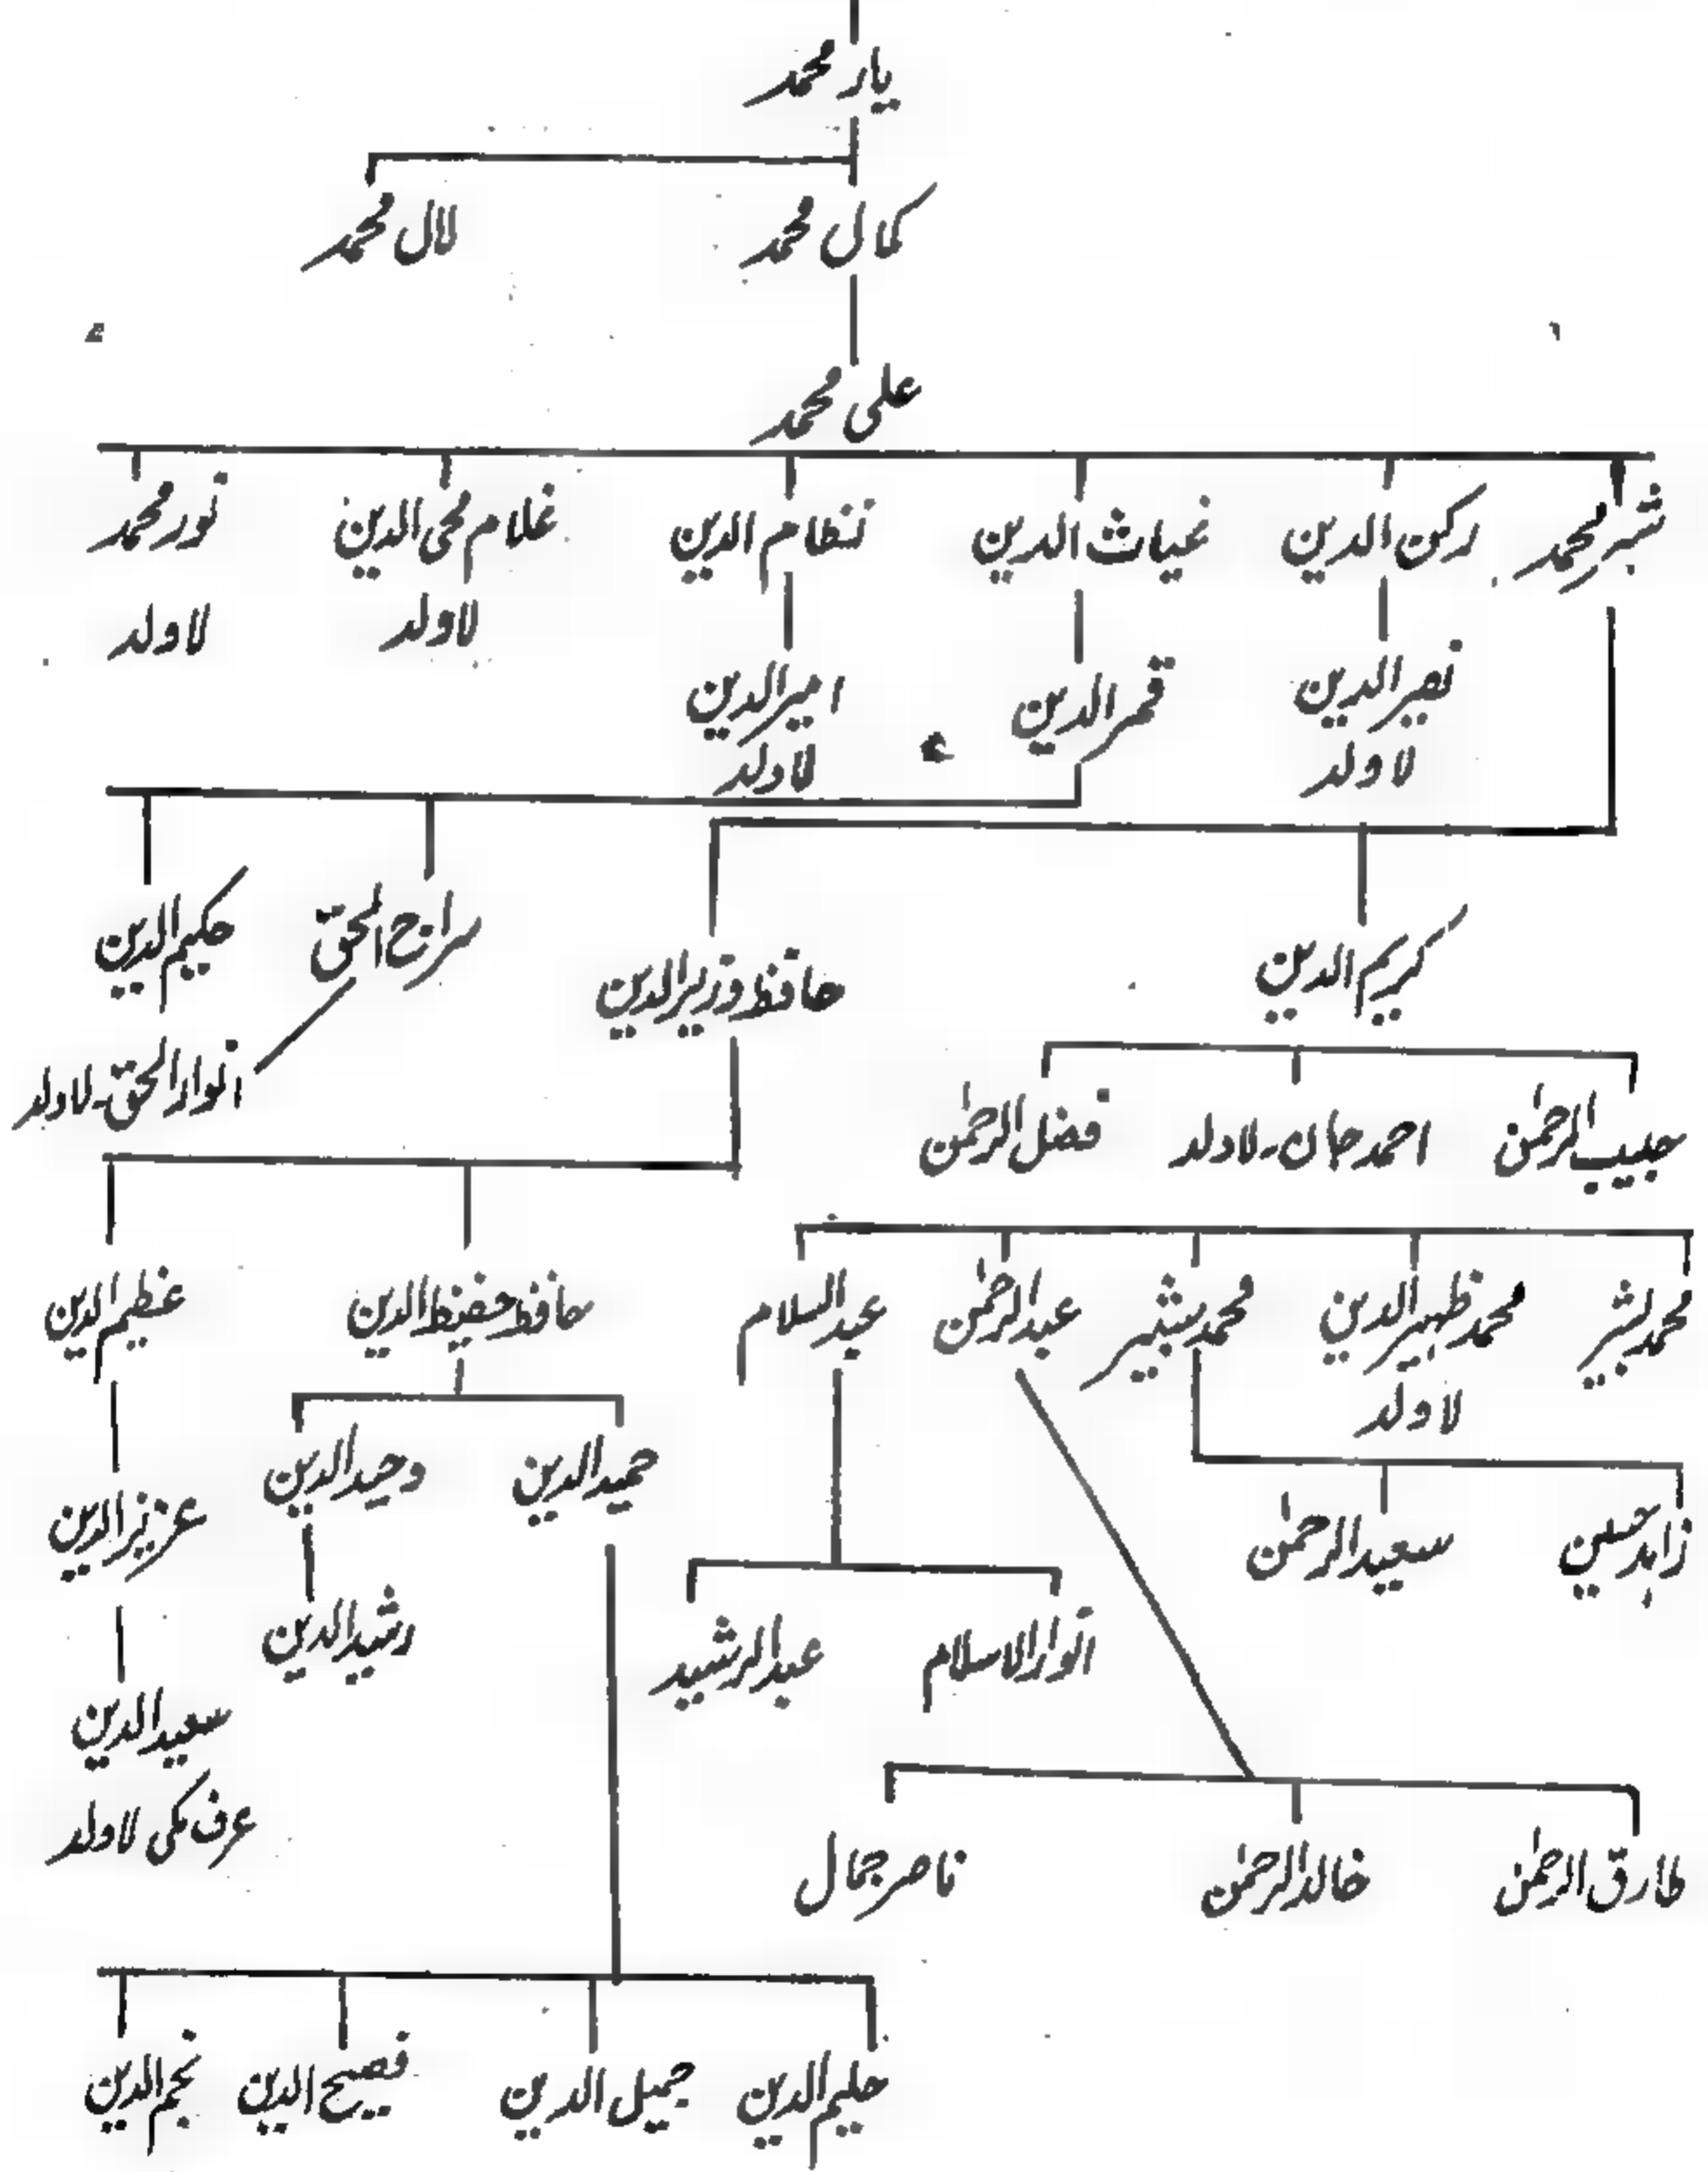 یار محمد
کمال محمد لال محمد
علی محمد
شیر محمد رکن الدین غیاث الدین نظام الدین غلام محی الدین نور محمد
لاولد لاولد
نصیر الدین قمر الدین امیر الدین
لاولد لاولد
کریم الدین حافظ وزیر الدین سراج الحق حکیم الدین
انوار الحق۔لاولد
حبیب الرحمٰن احمد جان۔لاولد فضل الرحمٰن
محمد بشر محمد ظہیر الدین محمد بشیر عبد الرحمٰن عبد السلام حافظ حفیظ الدین عظیم الدین
لاولد
حمید الدین وحید الدین
زاہد حسین سعید الرحمٰن عزیز الدین
انوار الاسلام عبد الرشید رشید الدین
سعید الدین
عرف مکی لاولد
طارق الرحمٰن خالد الرحمٰن ناصر جمال
حلیم الدین جمیل الدین فصیح الدین نجم الدین